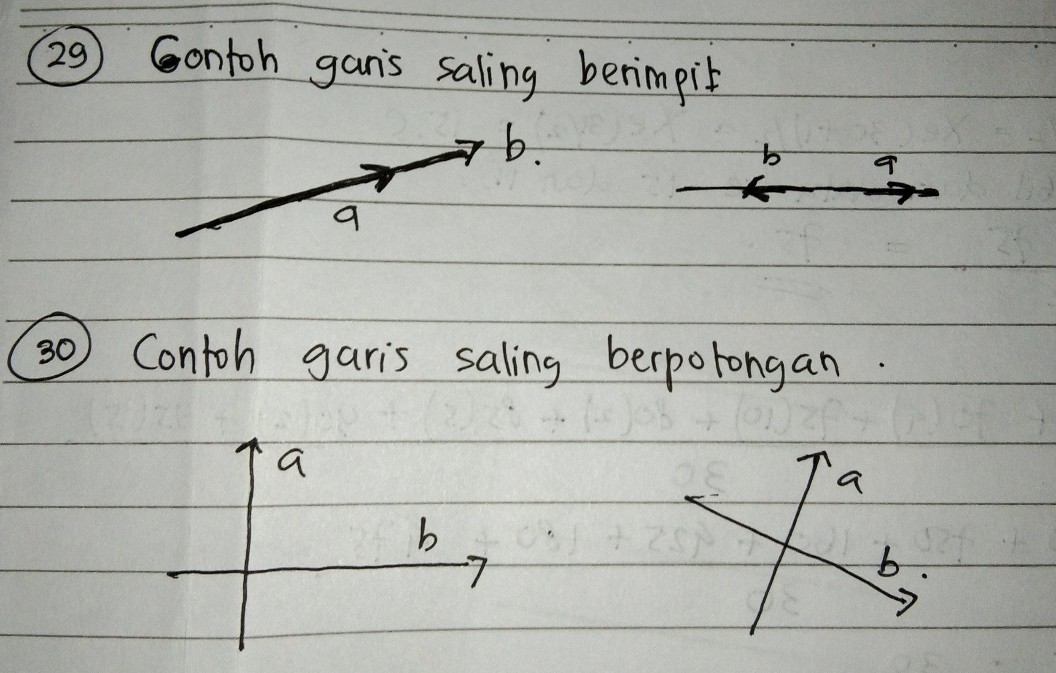 29 Contoh garis saling berimpit
b.
a
b a
30 Contoh garis saling berpotongan .
a
b
a
b .